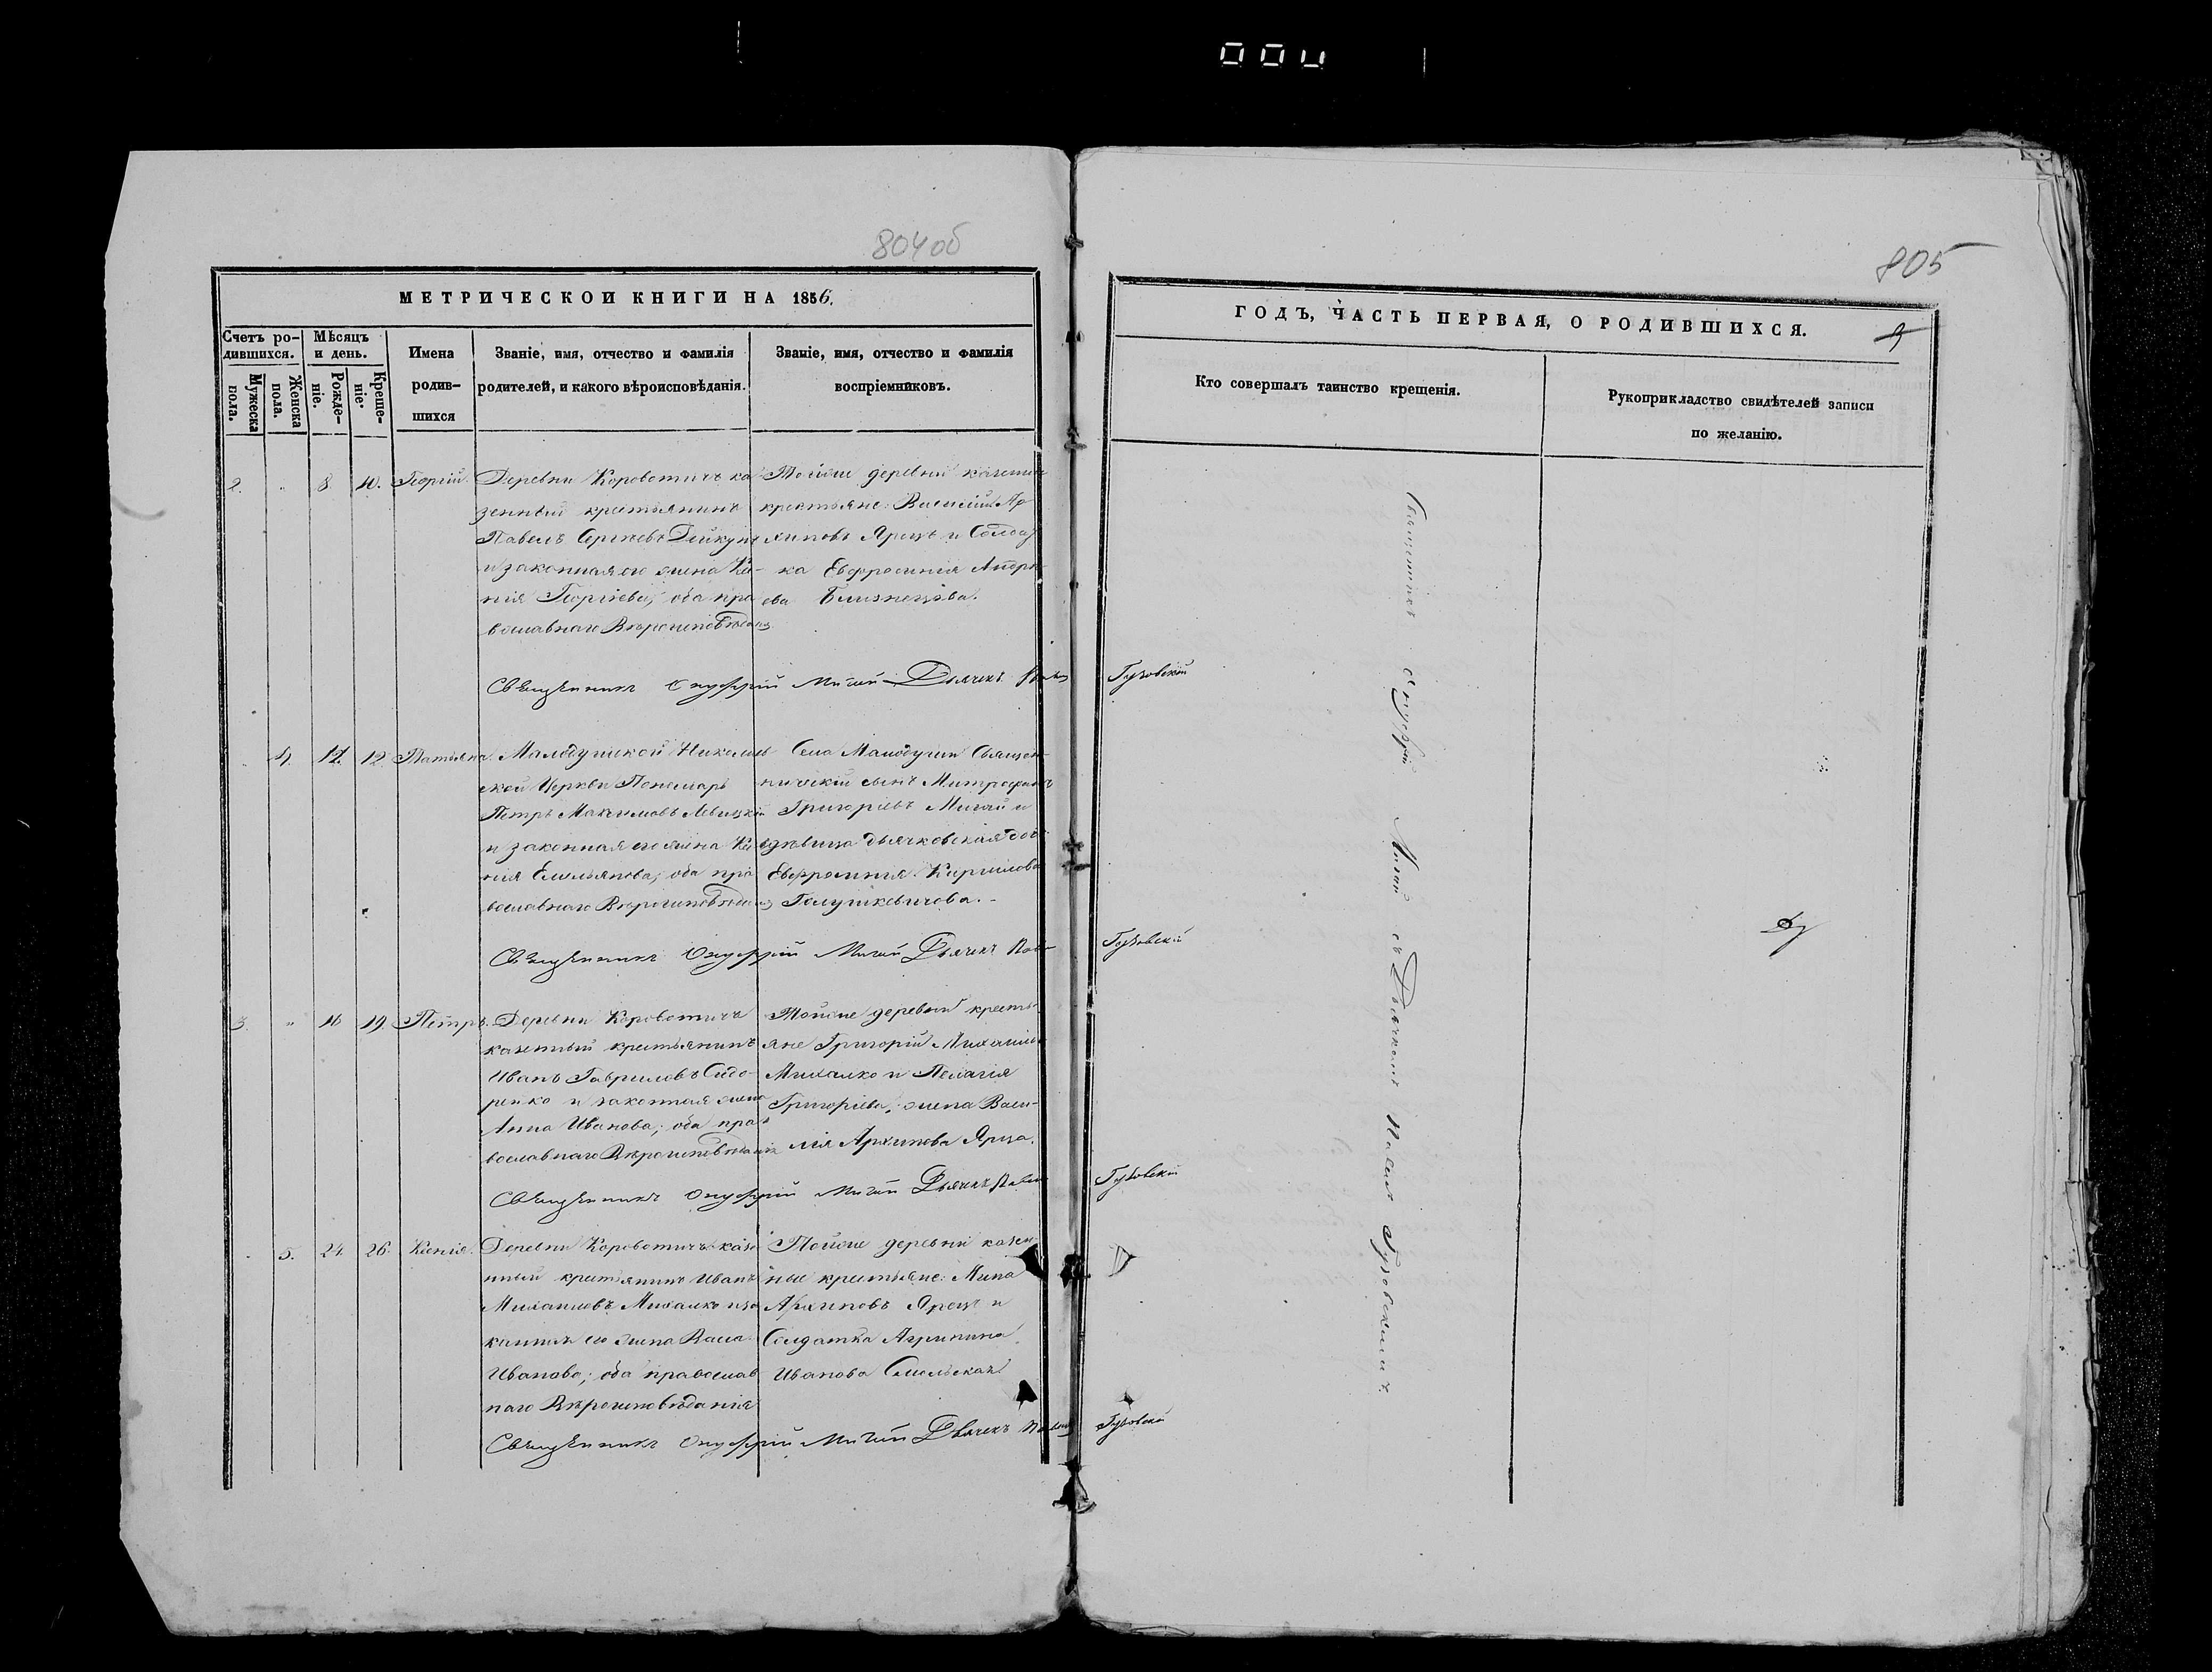 804об
МЕТРИЧЕСКОЙ КНИГИ НА 1856.
Счетъ ро-
дившихся.
Мужеска
пола.
Женска
пола.
Мѣсяцъ
и день.
Рожде-
ніе.
Креще-
ніе.
Имена
родив-
шихся
Званіе, имя, отчество и фамилія
родителей, и какого вѣроисповѣданія.
Званіе, имя, отчество и фамилія
воспріемниковъ.
2. 8. 10. Георгій.
Деревни Коровотичъ ка
зенный крестьянинъ
Павелъ Сергѣевъ Дейкунъ
и законная его жена Ксе-
нія Георгіева, оба пра
вославнаго Вѣроисповѣданія
Тойже деревни казенные
крестьяне: Василій Ар
хиповъ Ярецъ и Солдат
ка Евфросинія Андре
ева Близнецова.
Священникъ Онуфрій Мигай Дьячекъ Павелъ
4. 12. 12. Татьяна.
Малодушской Николаев
ской Церкви Пономарь
Петръ Максимовъ Левицкій
и законная его жена Ксе
нія Емельянова, оба пра
вославнаго Вѣроисповѣданія
Села Малодуши Священ-
ническій сынъ Митрофанъ
Григоріевъ Мигай и
дѣвица дьячковская дочь
Евфросинія Кирилова
Голушкевичова.
Священникъ Онуфрій Мигай Дьячекъ Павелъ
3. 16 19. Петръ.
Деревни Коровотичъ
казенный крестьянинъ
Иванъ Гавриловъ Сидо-
ренко и законная жена
Анна Иванова; оба пра
вославнаго Вѣроисповѣданія
Тойже деревни кресть-
яне Григорій Михайловъ
Михалко и Пелагія
Григоріева, жена Васи-
лія Архипова Ярца.
Священникъ Онуфрій Мигай Дьячекъ Павелъ
5. 24. 26. Ксенія.
Деревни Коровотичъ казе
нный крестьянинъ Иванъ
Михаиловъ Михалко и за
конная его жена Васса
Иванова; оба православ
наго Вѣроисповѣданія
Тойже деревни казен
ные крестьяне: Мина
Архиповъ Ярецъ и
Солдатка Агрипина
Иванова Смольская
Священникъ Онуфрій Мигай Дьячекъ Павелъ
805
ГОДЪ, ЧАСТЬ ПЕРВАЯ, О РОДИВШИХСЯ.
Кто совершалъ таинство крещенія.
Рукоприкладство свидѣтелей записи
по желанію.
Священникъ Онуфрій Мигай съ Дьячкомъ Павломъ Гузовскимъ.
Гузовскій
Гузовскій
Гузовскій
Гузовскій